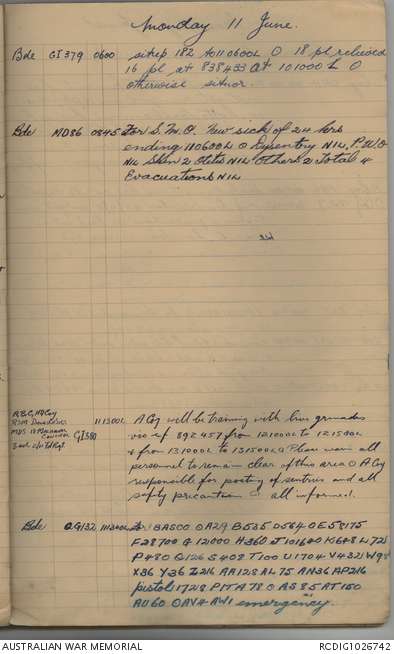 Monday 11 June.
Bde GI379 0600 sitrep 182 to 110600L O 18 pl relieved
16 pl at 838433 at 101000L O
otherwise sitnor.
Bde MD86 0845 For S.M.O. New sick of 24 hrs
ending 110600L O Dysentry NIL, P.U.O
NIL Skin 2 Otitis NIL Others 2 Total 4
Evacuations NIL
A, B, C, HQ Coy
RSM
MDS
GI380 111300L A Coy will be training with live grenades
vic ref 892457 from 121000L to 121500L
& from 131000L to 131500L O Please warn all
personnel to remain clear of this area O A Coy
responsible for posting of sentries and all
safety precautions O all informed.
Bde QG132 BASCO O A29 B535 D564 O E58175
F28700 G12000 H360 J101640 K648 L72
P480 Q126 S408 T100 U1704 V432
X36 Y36 Z216 AA128 AL75 AN36 AP216
pistol 1728 PITA 780 AS85 AT150
AU60 O AV4 AW1 emergency.
AUSTRALIAN WAR MEMORIAL
RCDIG1026742